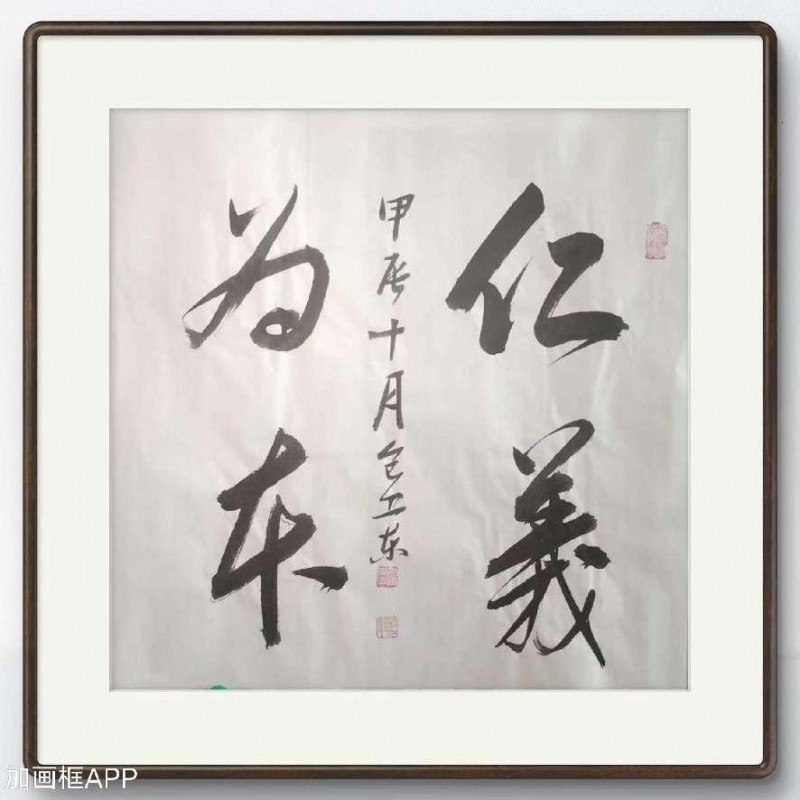 仁義
为本
甲辰十月仓卫东
加画框APP